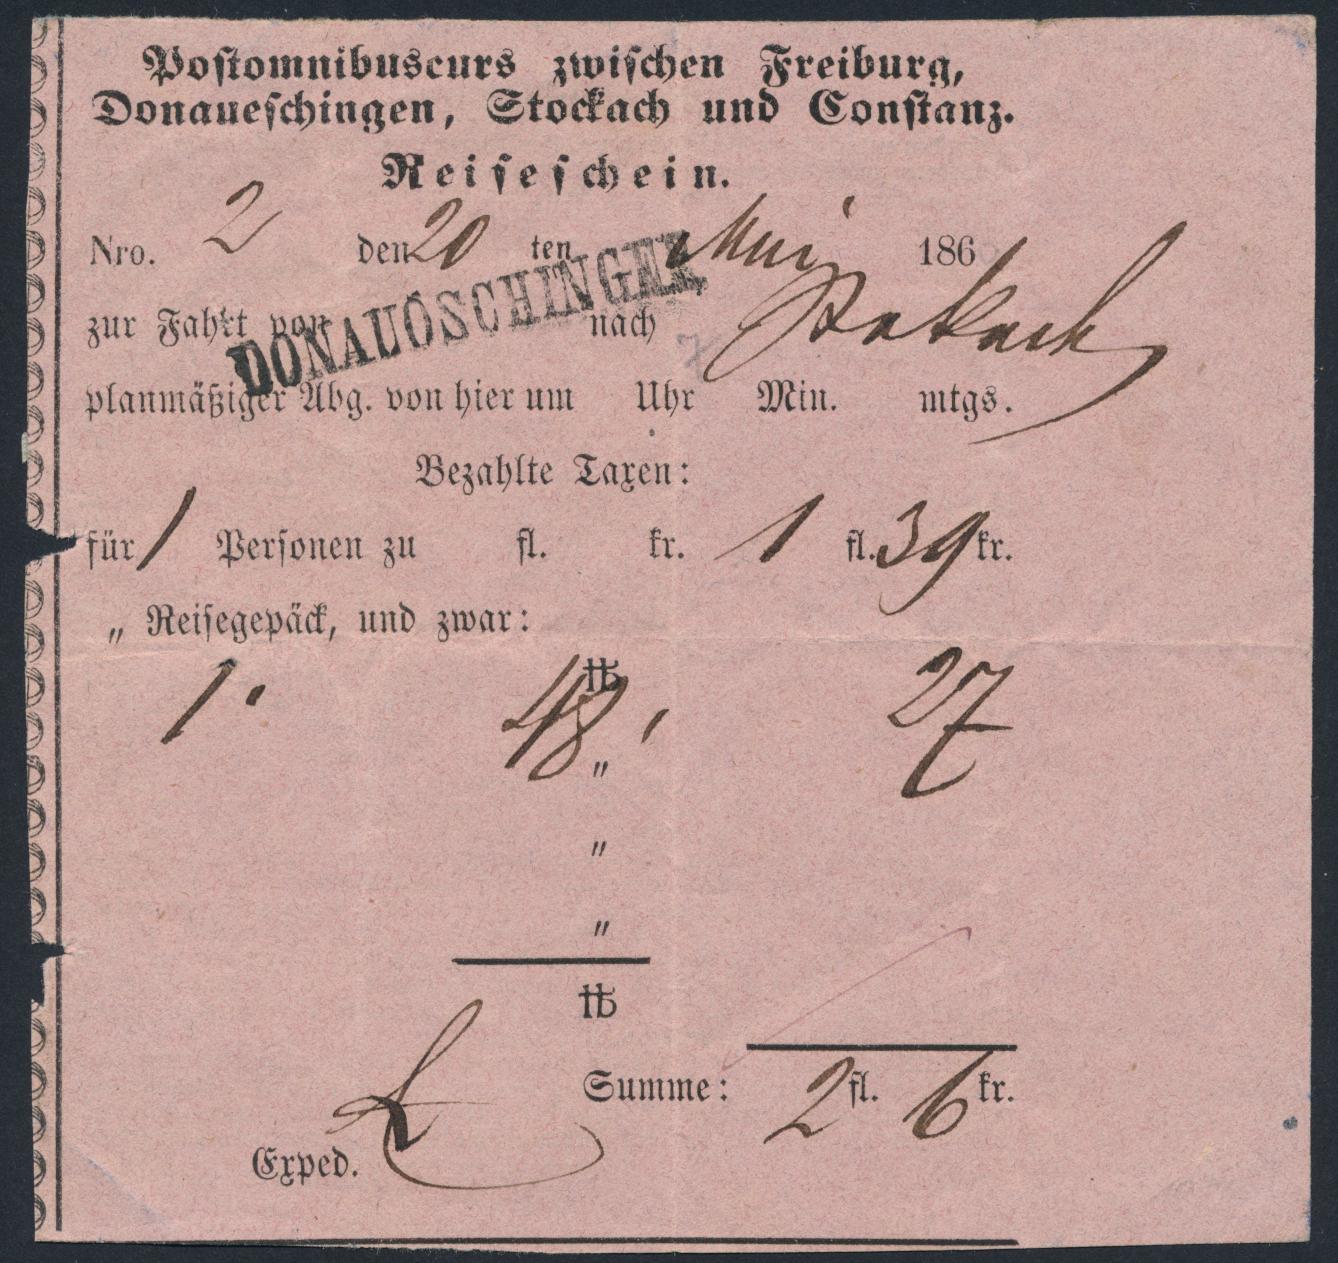 Postomnibuscurs zwischen Freiburg,
Donaueschingen, Stockach und Constanz.
Reiseschein.
Nro. 2 den 20 ten Mai 186
zur Fahrt von DONAUÖSCHINGEN nach Stokach
planmäßiger Abg. von hier um Uhr Min. mtgs.
Bezahlte Taxen:
für 1 Personen zu fl. kr. 1 fl. 39 kr.
„ Reisegepäck, und zwar:
1. 48 ℔ 27
„
„
„
℔
Summe: 2 fl. 6 kr.
Exped.